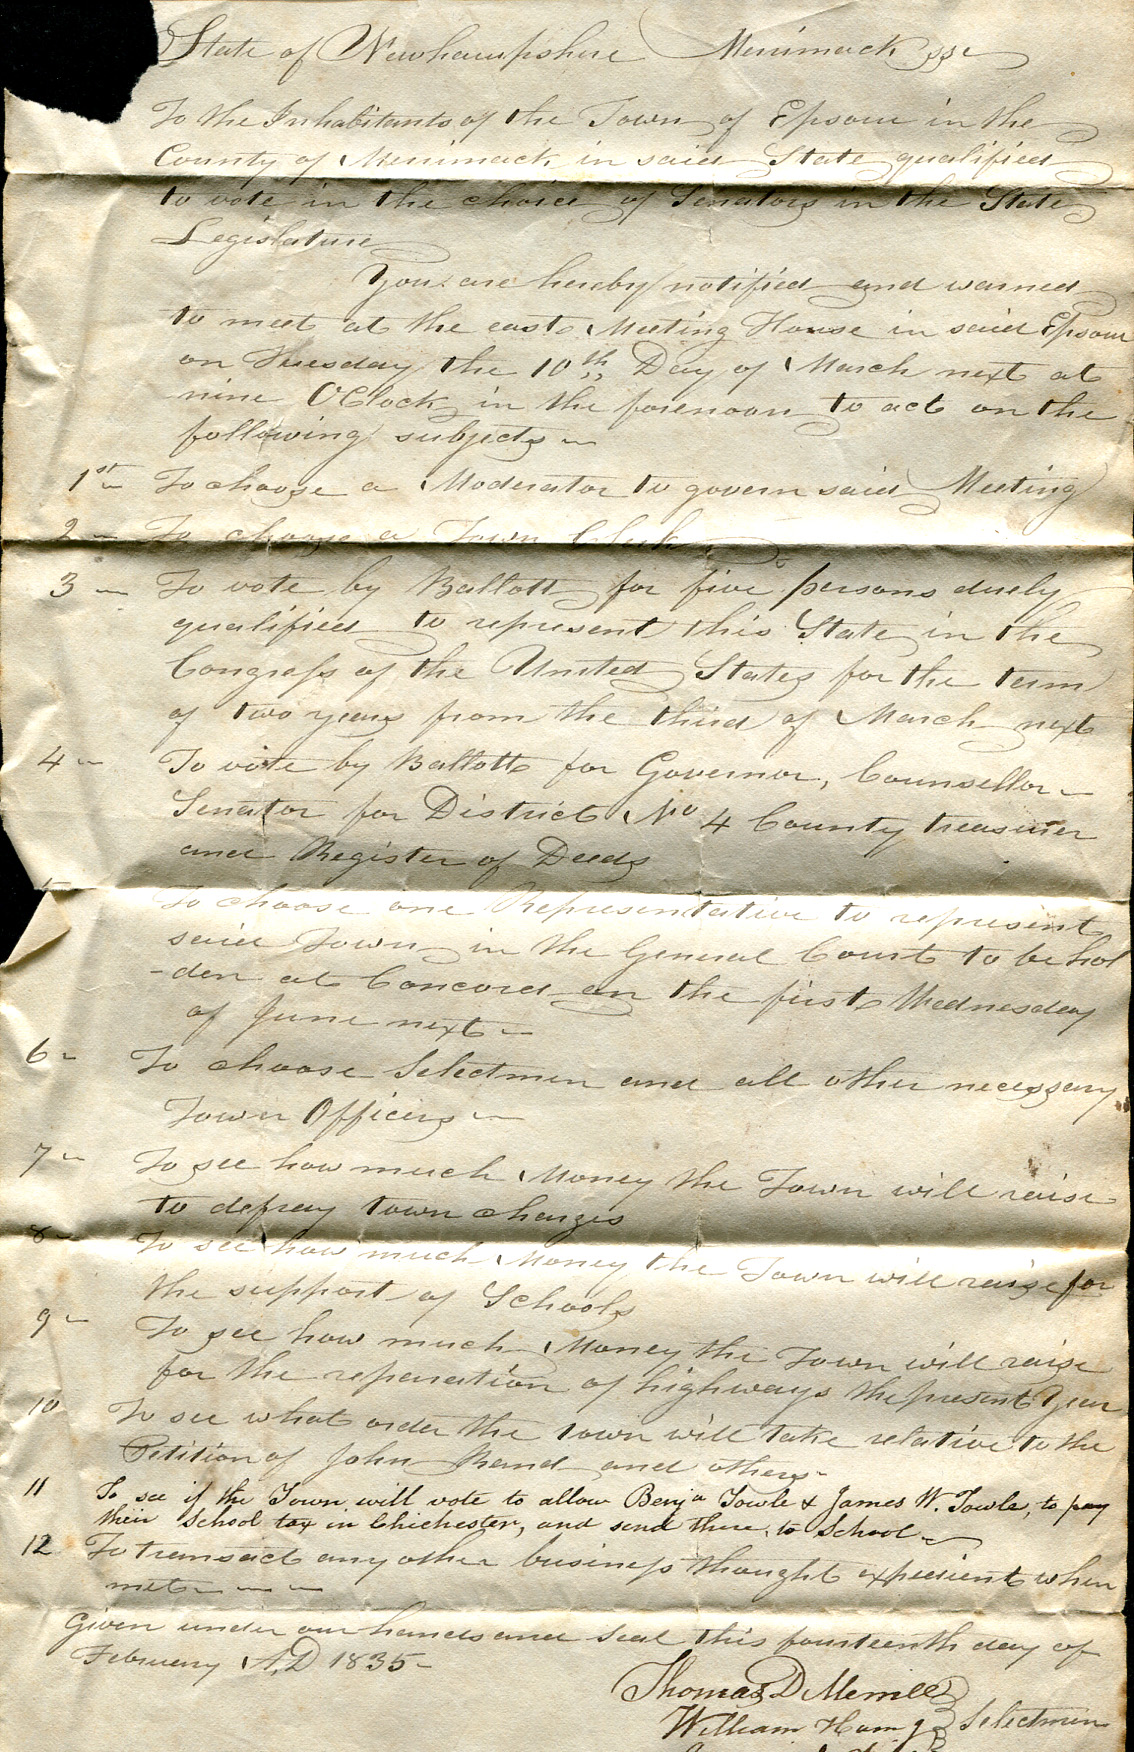 State of Newhampshire Merrimack ss
To the Inhabitants of the Town of Epsom in the
County of Merrimack in said State qualified
to vote in the choice of Senators in the State
Legislature
You are hereby notified and warned
to meet at the east Meeting House in said Epsom
on Tuesday the 10th Day of March next at
nine O'Clock in the forenoon to act on the
following subjects
1st To choose a Moderator to govern said Meeting
2 To choose a Town Clerk
3 To vote by Ballott for five persons duely
qualified to represent this State in the
Congress of the United States for the term
of two years from the third of March next
4 To vote by Ballott for Governor, Counsellor
Senator for District No 4 County treasurer
and Register of Deeds
5 To choose one Representative to represent
said Town in the General Court to be hol
-den at Concord on the first Wednesday
of June next
6 To choose Selectmen and all other necessary
Town Officers
7 To see how much Money the Town will raise
to defray town charges
8 To see how much Money the Town will raise for
the support of Schools
9 To see how much Money the Town will raise
for the reparation of highways the present year
10 To see what order the town will take relative to the
Petition of John Rand and others
11 To see if the Town will vote to allow Benja Towle & James W. Towle, to pay
their School tax in Chichester, and send there, to School
12 To transact any other business thought expedient when
met
Given under our hands and seal this fourteenth day of
February A,D 1835
Thomas D Merrill
William Ham Jr Selectmen